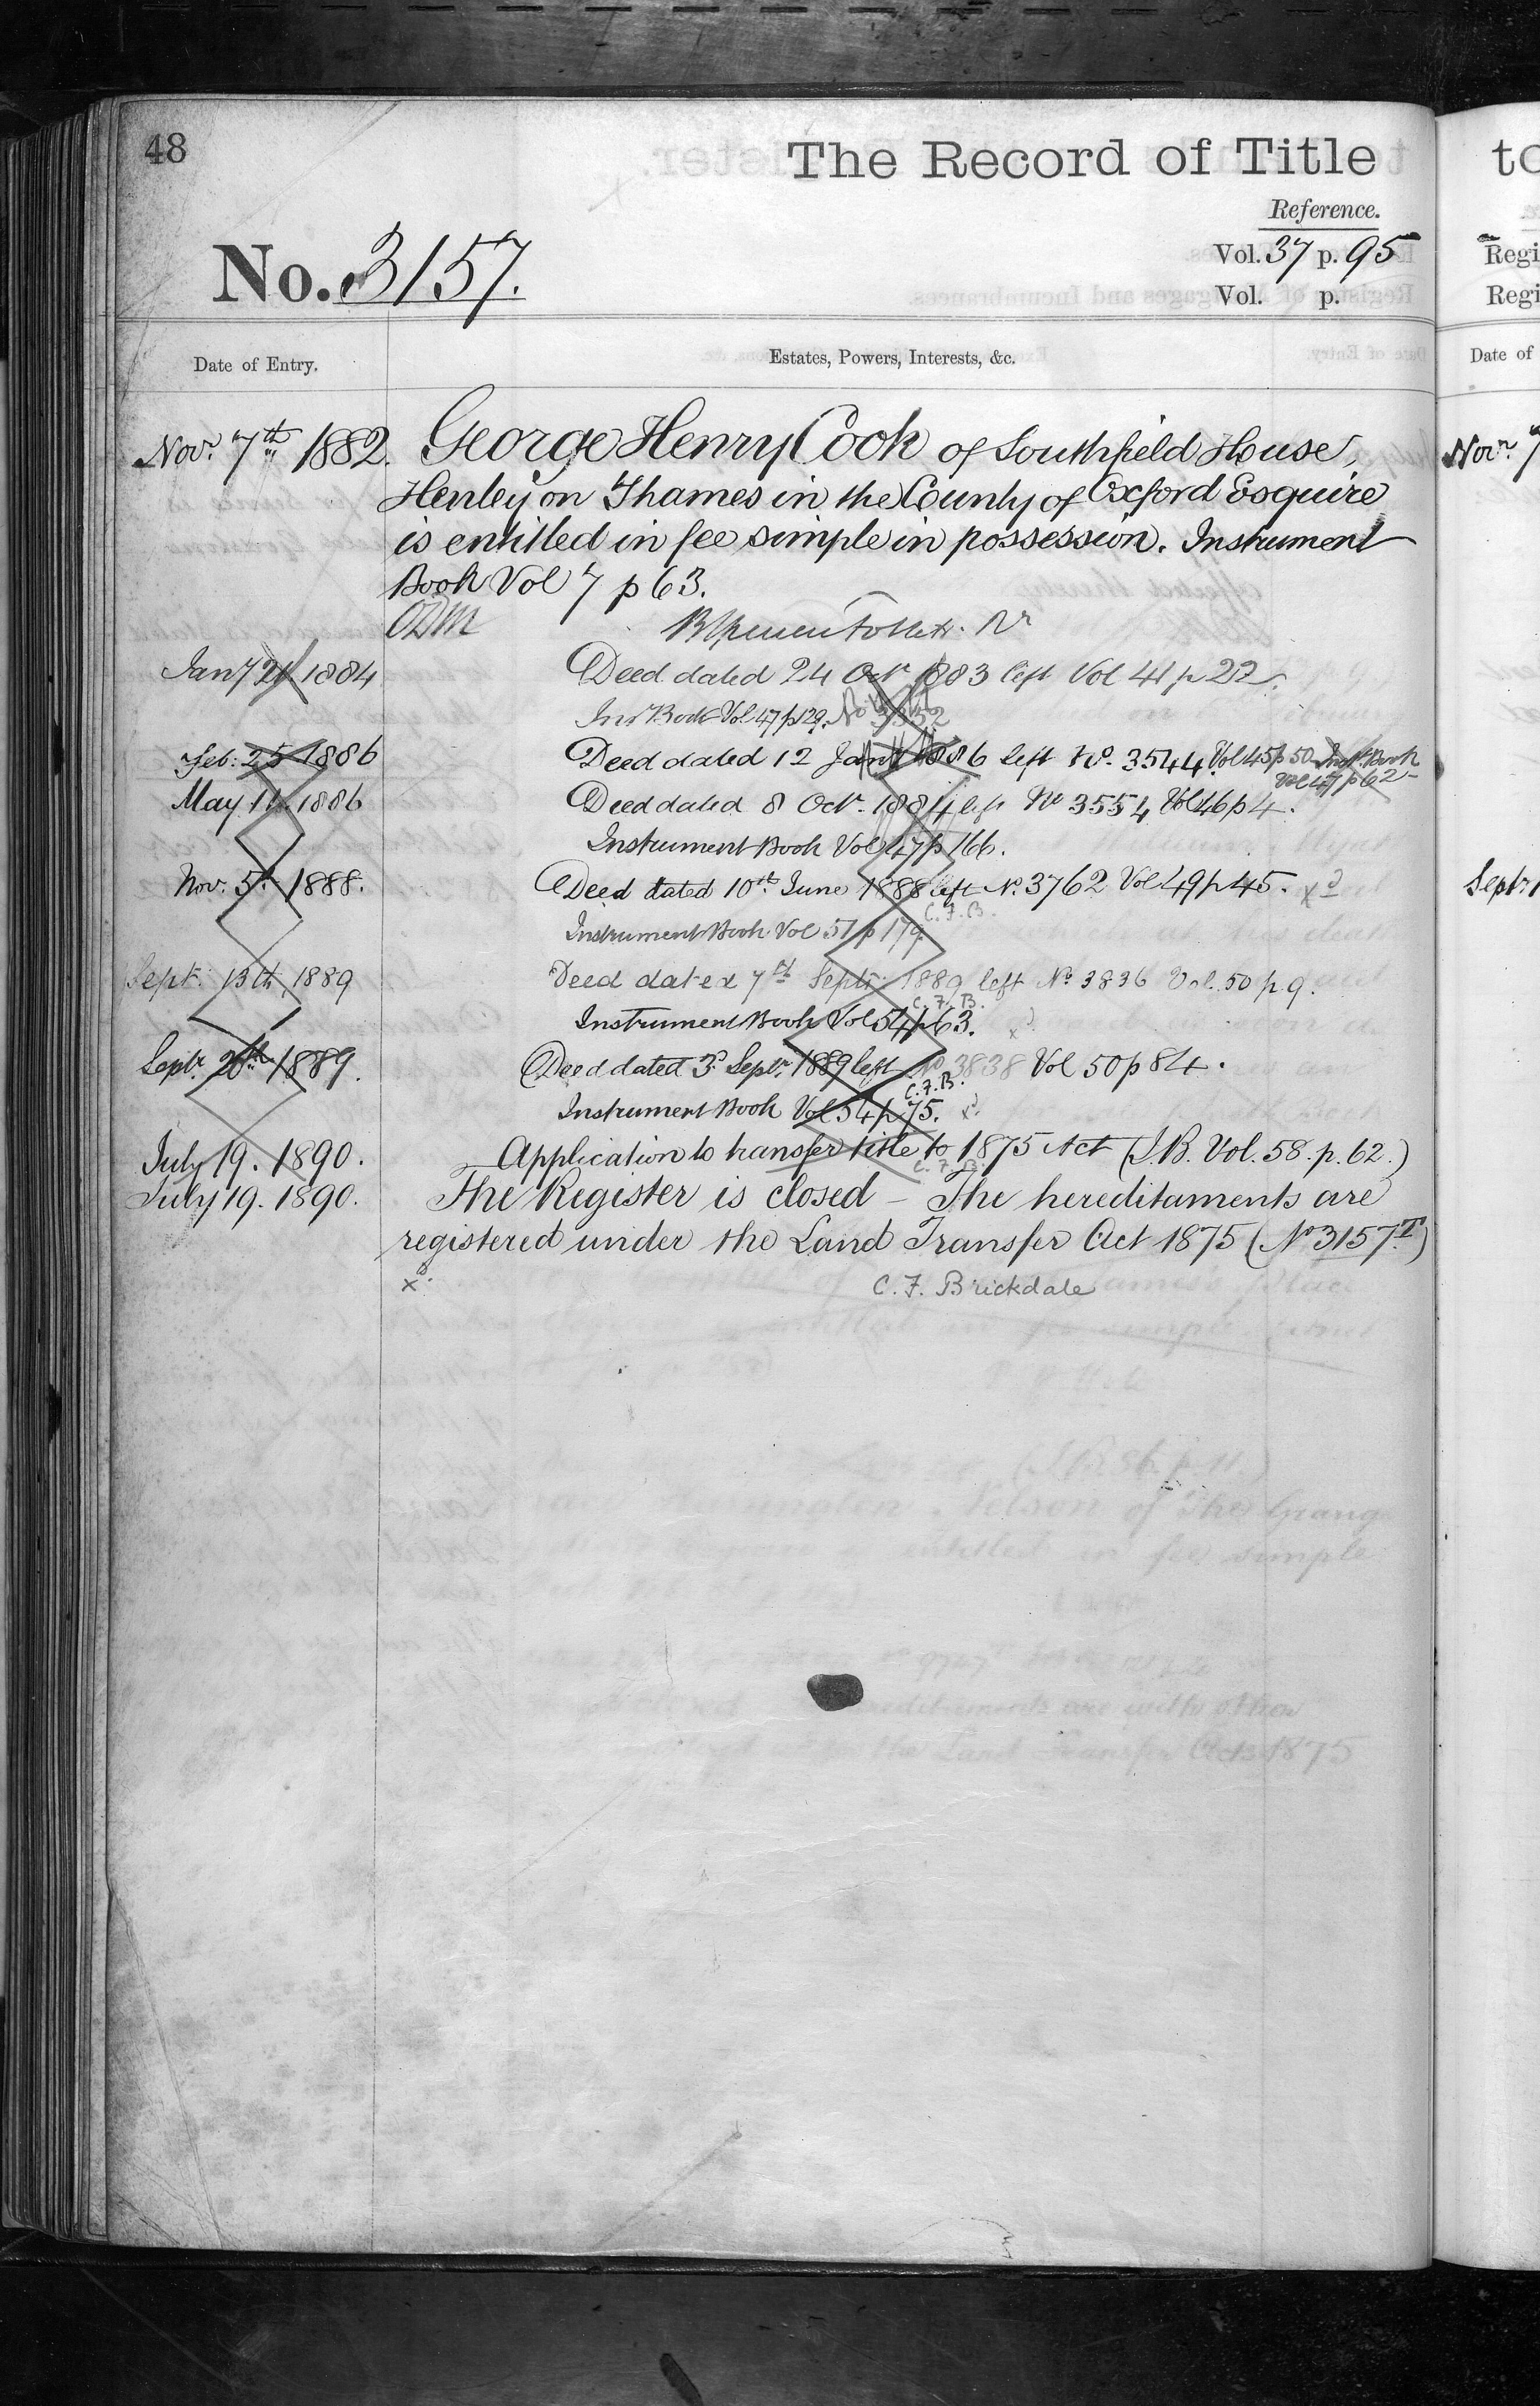 48
The Record of Title
Reference.
No. 3157.
Vol. 37 p. 95
Vol. p.
Date of Entry.
Estates, Powers, Interests, &c.
Novr. 7th 1882. George Henry Cook of Southfield House,
Henley on Thames in the County of Oxford Esquire
is entitled in fee simple in possession. Instrument
Book Vol 7 p 63.
Jany 21 1884 Deed dated 24 Octr 1883 left Vol 41 p 22.
Inst Book Vol 47 p 129. No 3352
Feb: 25 1886 Deed dated 12 Jany 1886 left No. 3544 Vol 45 p 50 Inst. Book
Vol 47 p 62
May 11 1886 Deed dated 8 Octr. 1884 left No 3554 Vol 46 p 4.
Instrument Book Vol 47 p 166.
Nov. 5. 1888. Deed dated 10th June 1888 left No. 3762 Vol 49 p 45. xd
C.F.B.
Instrument Book Vol 51 p 179.
Sept: 13th 1889 Deed dated 7th Septr: 1889 left No. 3836 Vol. 50 p 9.
C.F.B.
Instrument Book Vol 54 p 63. xd
Septr. 20th 1889. Deed dated 3d Septr. 1889 left No 3838 Vol 50 p 84.
C.F.B.
Instrument Book Vol. 54 p 75. xd
July 19. 1890. Application to transfer title to 1875 Act (I.B. Vol. 58. p. 62.)
C.F.B.
July 19. 1890. The Register is closed – The hereditaments are
registered under the Land Transfer Act 1875 (No 3157.T)
xd. C. F. Brickdale
to
Regi
Regi
Date of
Novr. 7
Septr 1